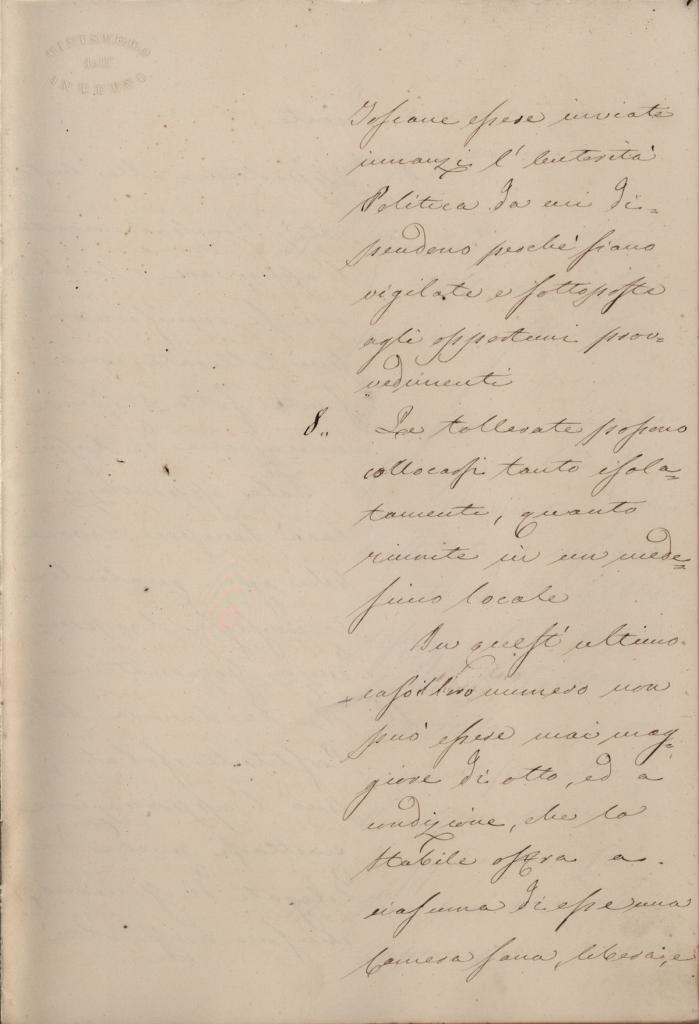 MINISTERO
DELL'
INTERNO
essere inviate
innanzi l'Autorità
Politica da cui di=
pendono perché siano
vigilate e sottoposte
agli opportuni prov=
vedimenti
8.. Le tollerate possono
collocarsi tanto isola=
tamente, quanto
riunite in un mede=
simo locale
In quest'ultimo
caso il loro numero non
può essere mai mag=
giore di otto, ed a
condizione, che lo
Stabile offra a
ciascuna di esse una
Camera sana, libera, e